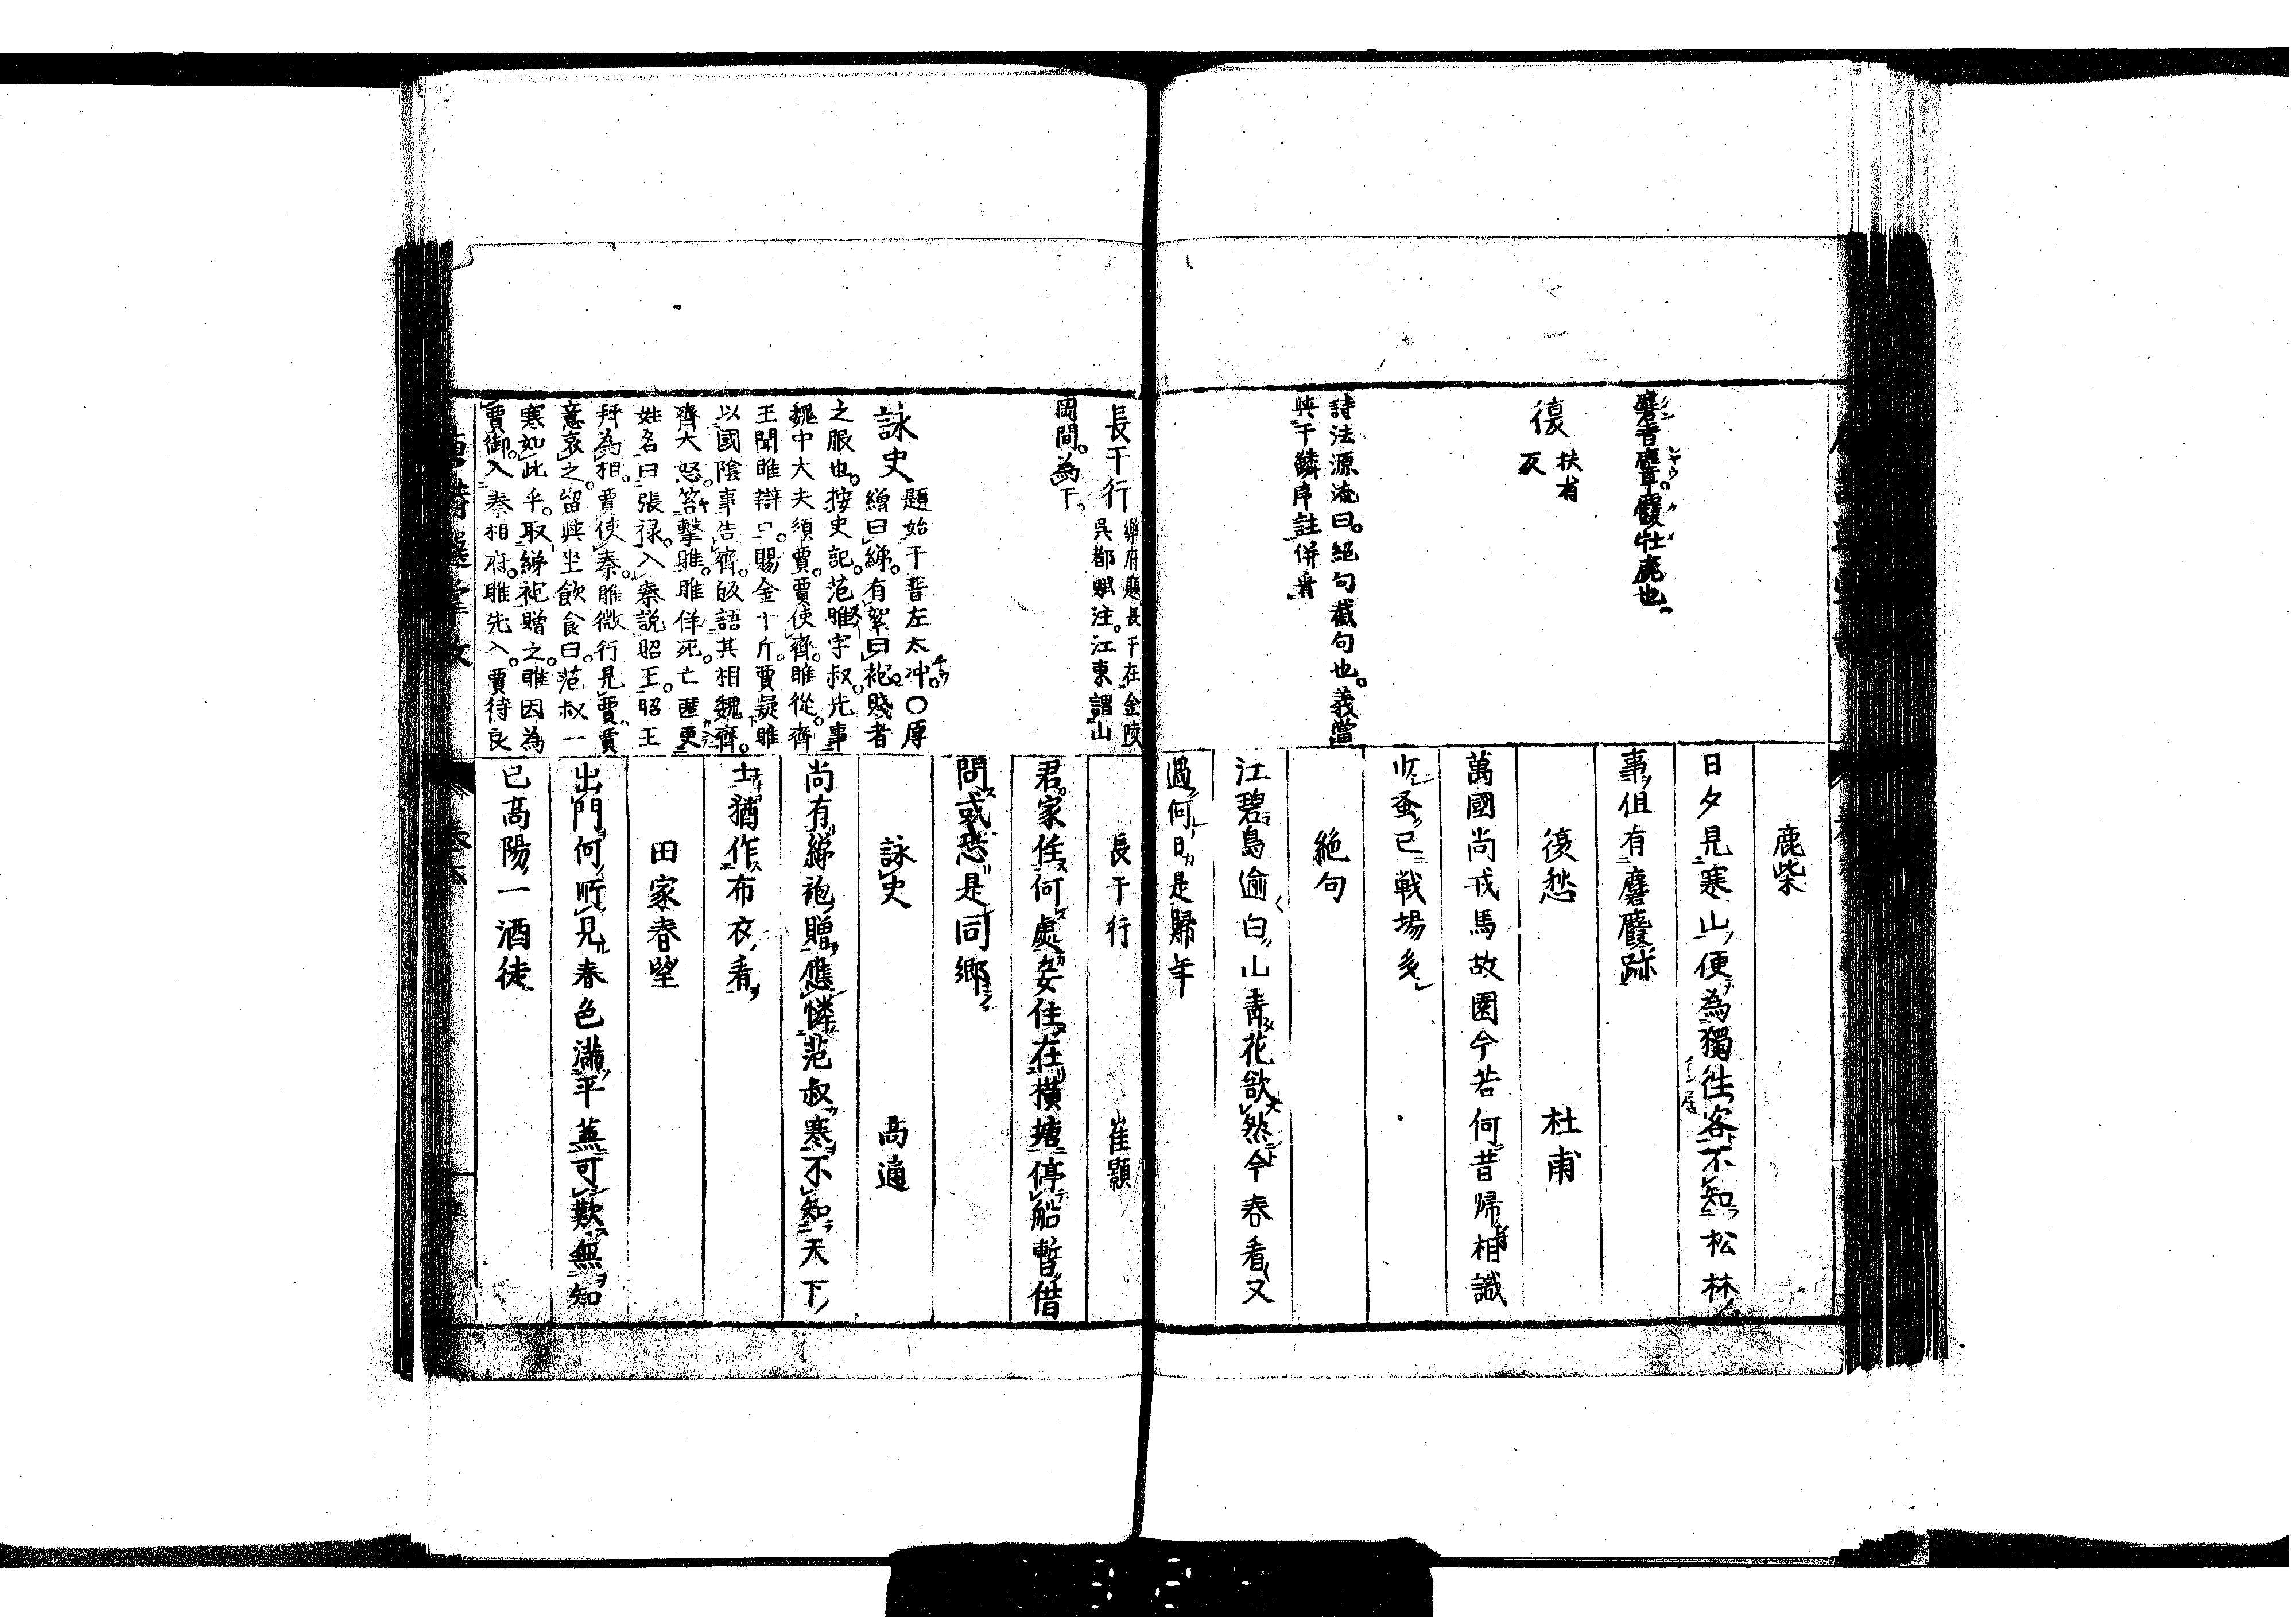 鹿柴
日夕見寒山便為獨往客不知松林
事但有麏麚跡
復愁 杜甫
萬國尚戎馬故園今若何昔歸相識
少蚤已戰場多
絕句
江碧鳥逾白山青花欲然今春看又
過何日是歸年
麏香麞麚牡鹿也
復 扶有
反
詩法源流曰絕句截句也義當
與于鱗序註併看
長干行 崔顥
君家住何處妾住在橫塘停船暫借
問或恐是同鄉
詠史 高適
尚有綈袍贈應憐范叔寒不知天下
士猶作布衣看
田家春望
出門何所見春色滿平蕪可歎無知
己高陽一酒徒
長干行 樂府題長干在金陵
吳都賦注江東謂山
岡間為干
詠史 題始于晉左太冲〇厚
繒曰綈有絮曰袍賤者
之服也按史記范雎字叔先事
魏中大夫須賈賈使齊雎從齊
王聞雎辯口賜金十斤賈疑雎
以國陰事告齊皈語其相魏齊
齊大怒笞擊雎雎佯死亡匿更
姓名曰張祿入秦說昭王昭王
拜為相賈使秦雎微行見賈賈
意哀之留與坐飲食曰范叔一
寒如此乎取綈袍贈之雎因為
賈御入秦相府雎先入賈待良